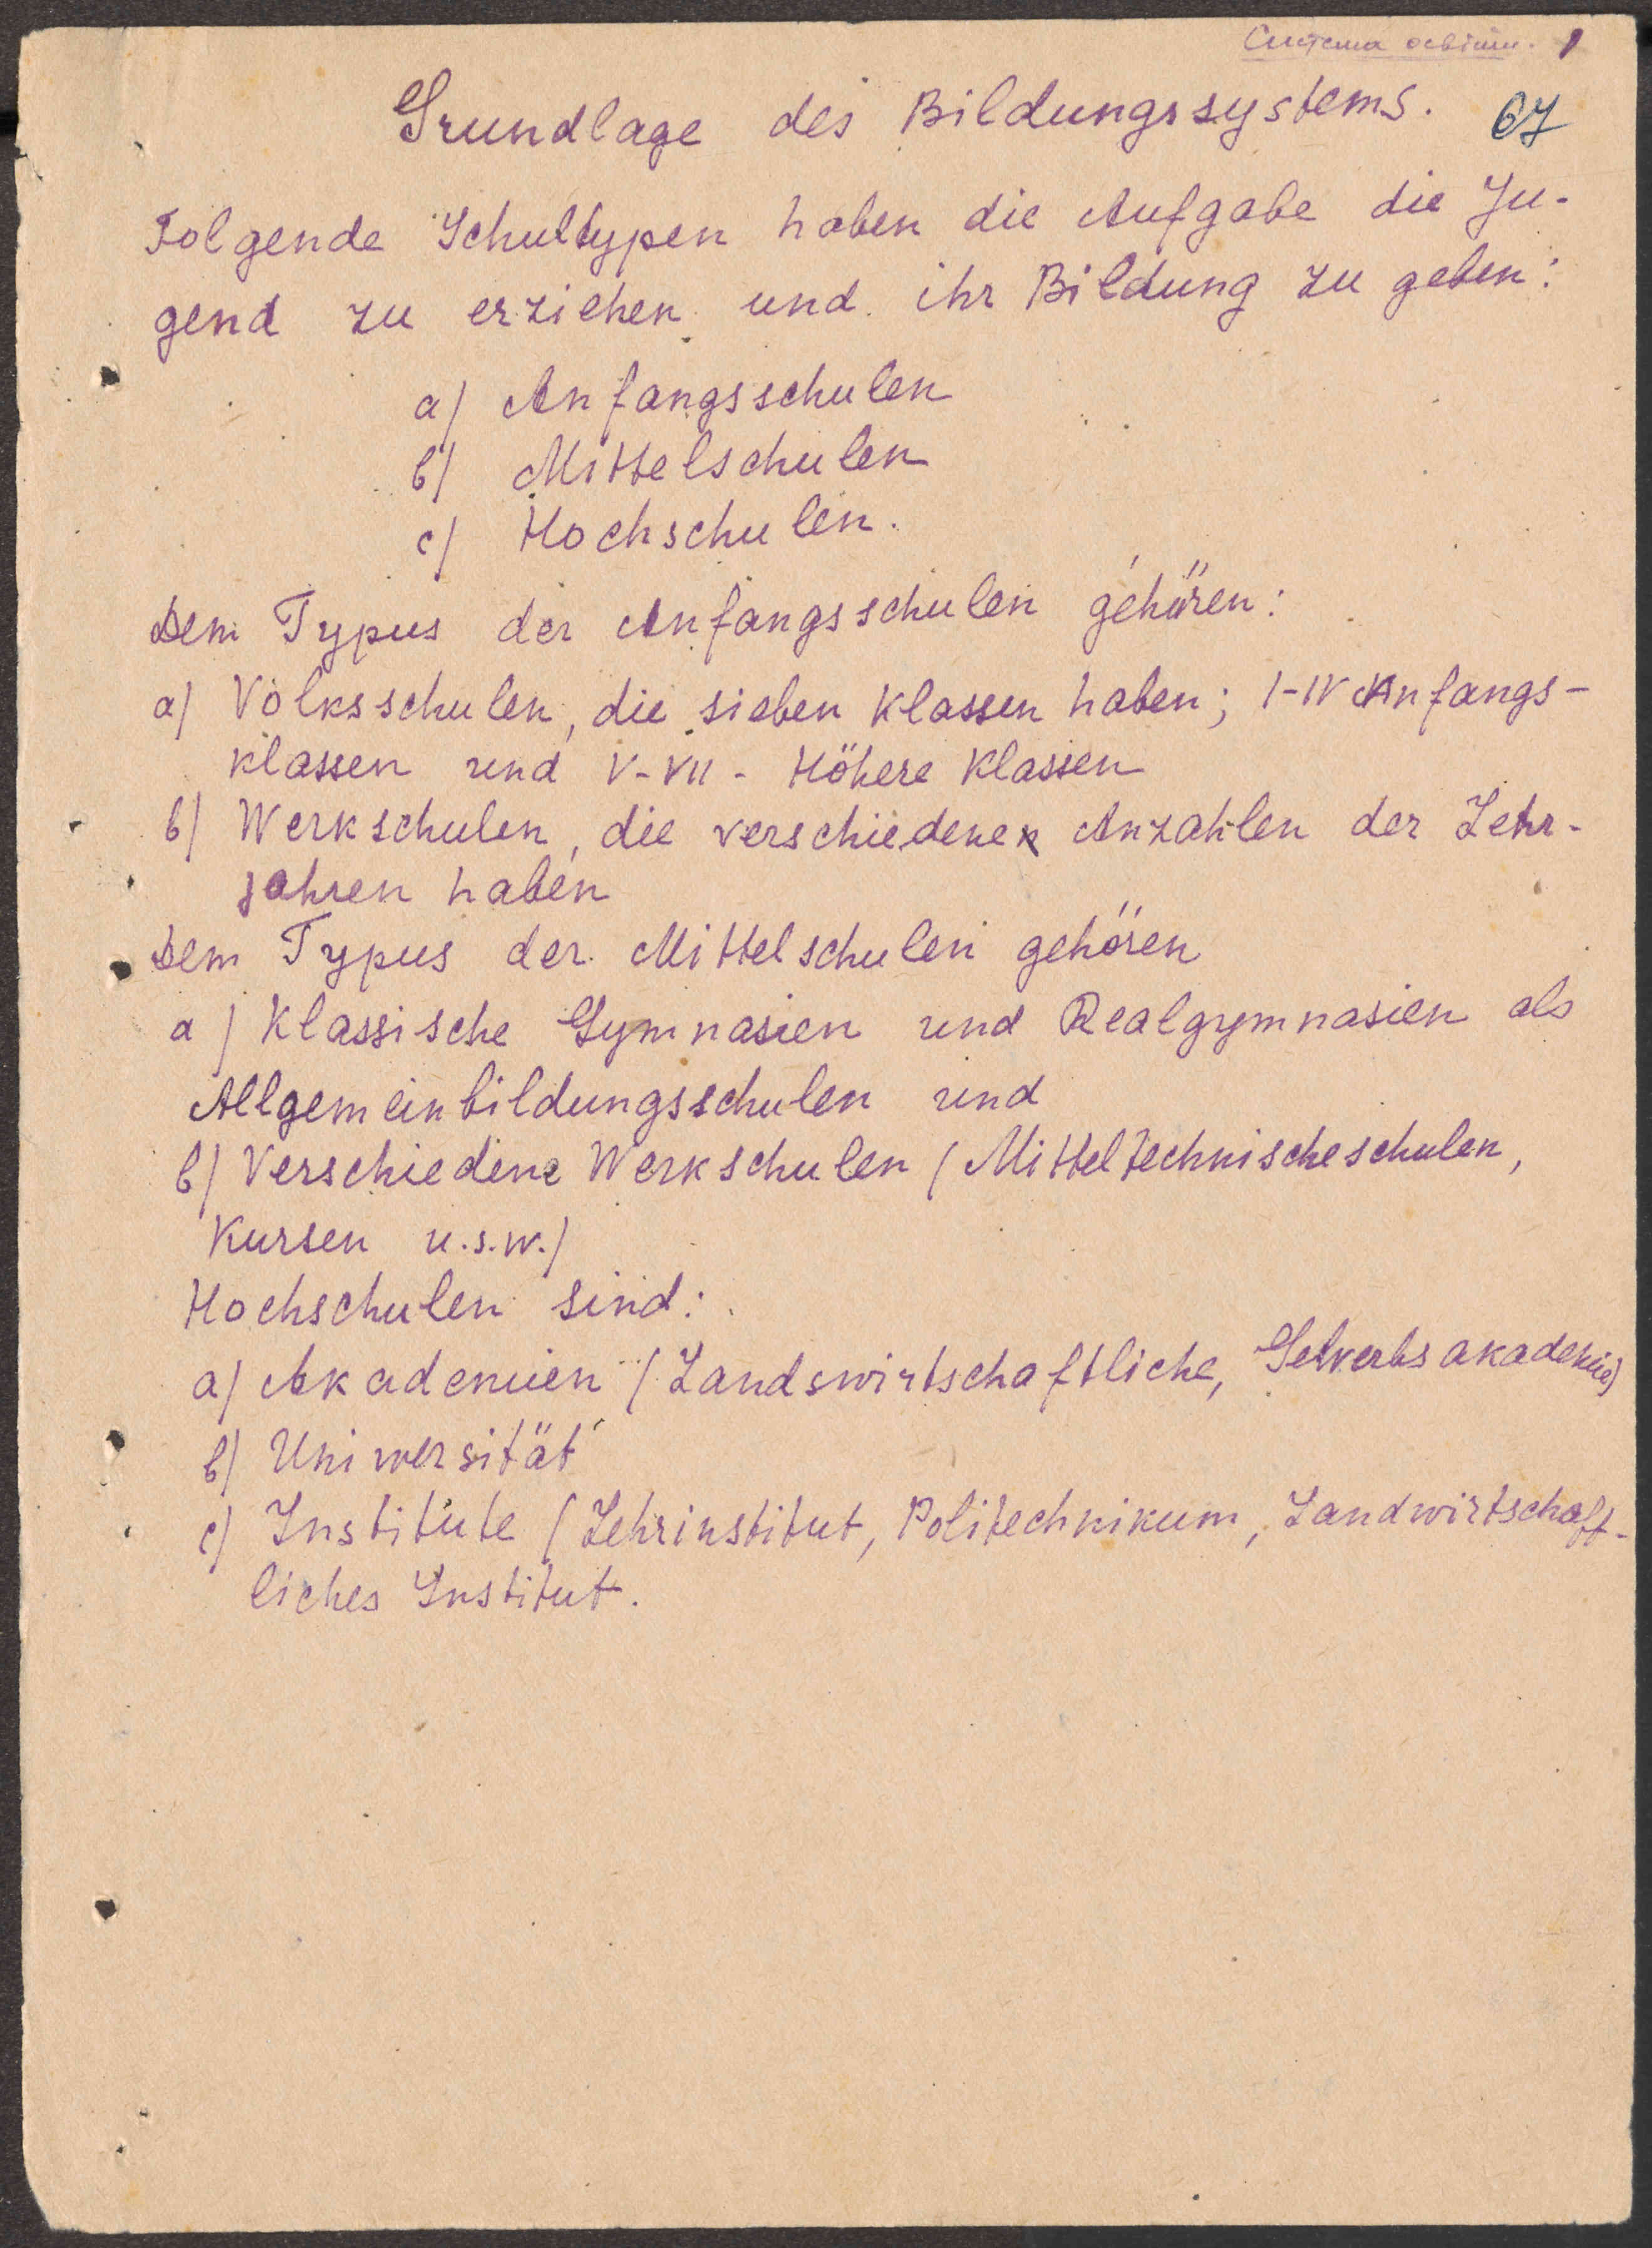 Система освіти. 1
Grundlage des Bildungssystems. 67
Folgende Schultypen haben die Aufgabe die Ju-
gend zu erziehen und ihr Bildung zu geben:
a) Anfangsschulen
b) Mittelschulen
c) Hochschulen.
Dem Typus der Anfangsschulen gehören:
a) Volksschulen, die sieben Klassen haben; I-IV Anfangs-
klassen und V-VII - Höhere Klassen
b) Werkschulen, die verschiedene Anzahlen der Lehr-
jahren haben
Dem Typus der Mittelschulen gehören
a) Klassische Gymnasien und Realgymnasien als
Allgemeinbildungsschulen und
b) Verschiedene Werkschulen (Mitteltechnischeschulen,
Kursen u.s.w.)
Hochschulen sind:
a) Akademien (Landswirtschaftliche, Gewerbsakademie)
b) Uniwersität
c) Institute (Lehrinstitut, Politechnikum, Landwirtschaft-
liches Institut.